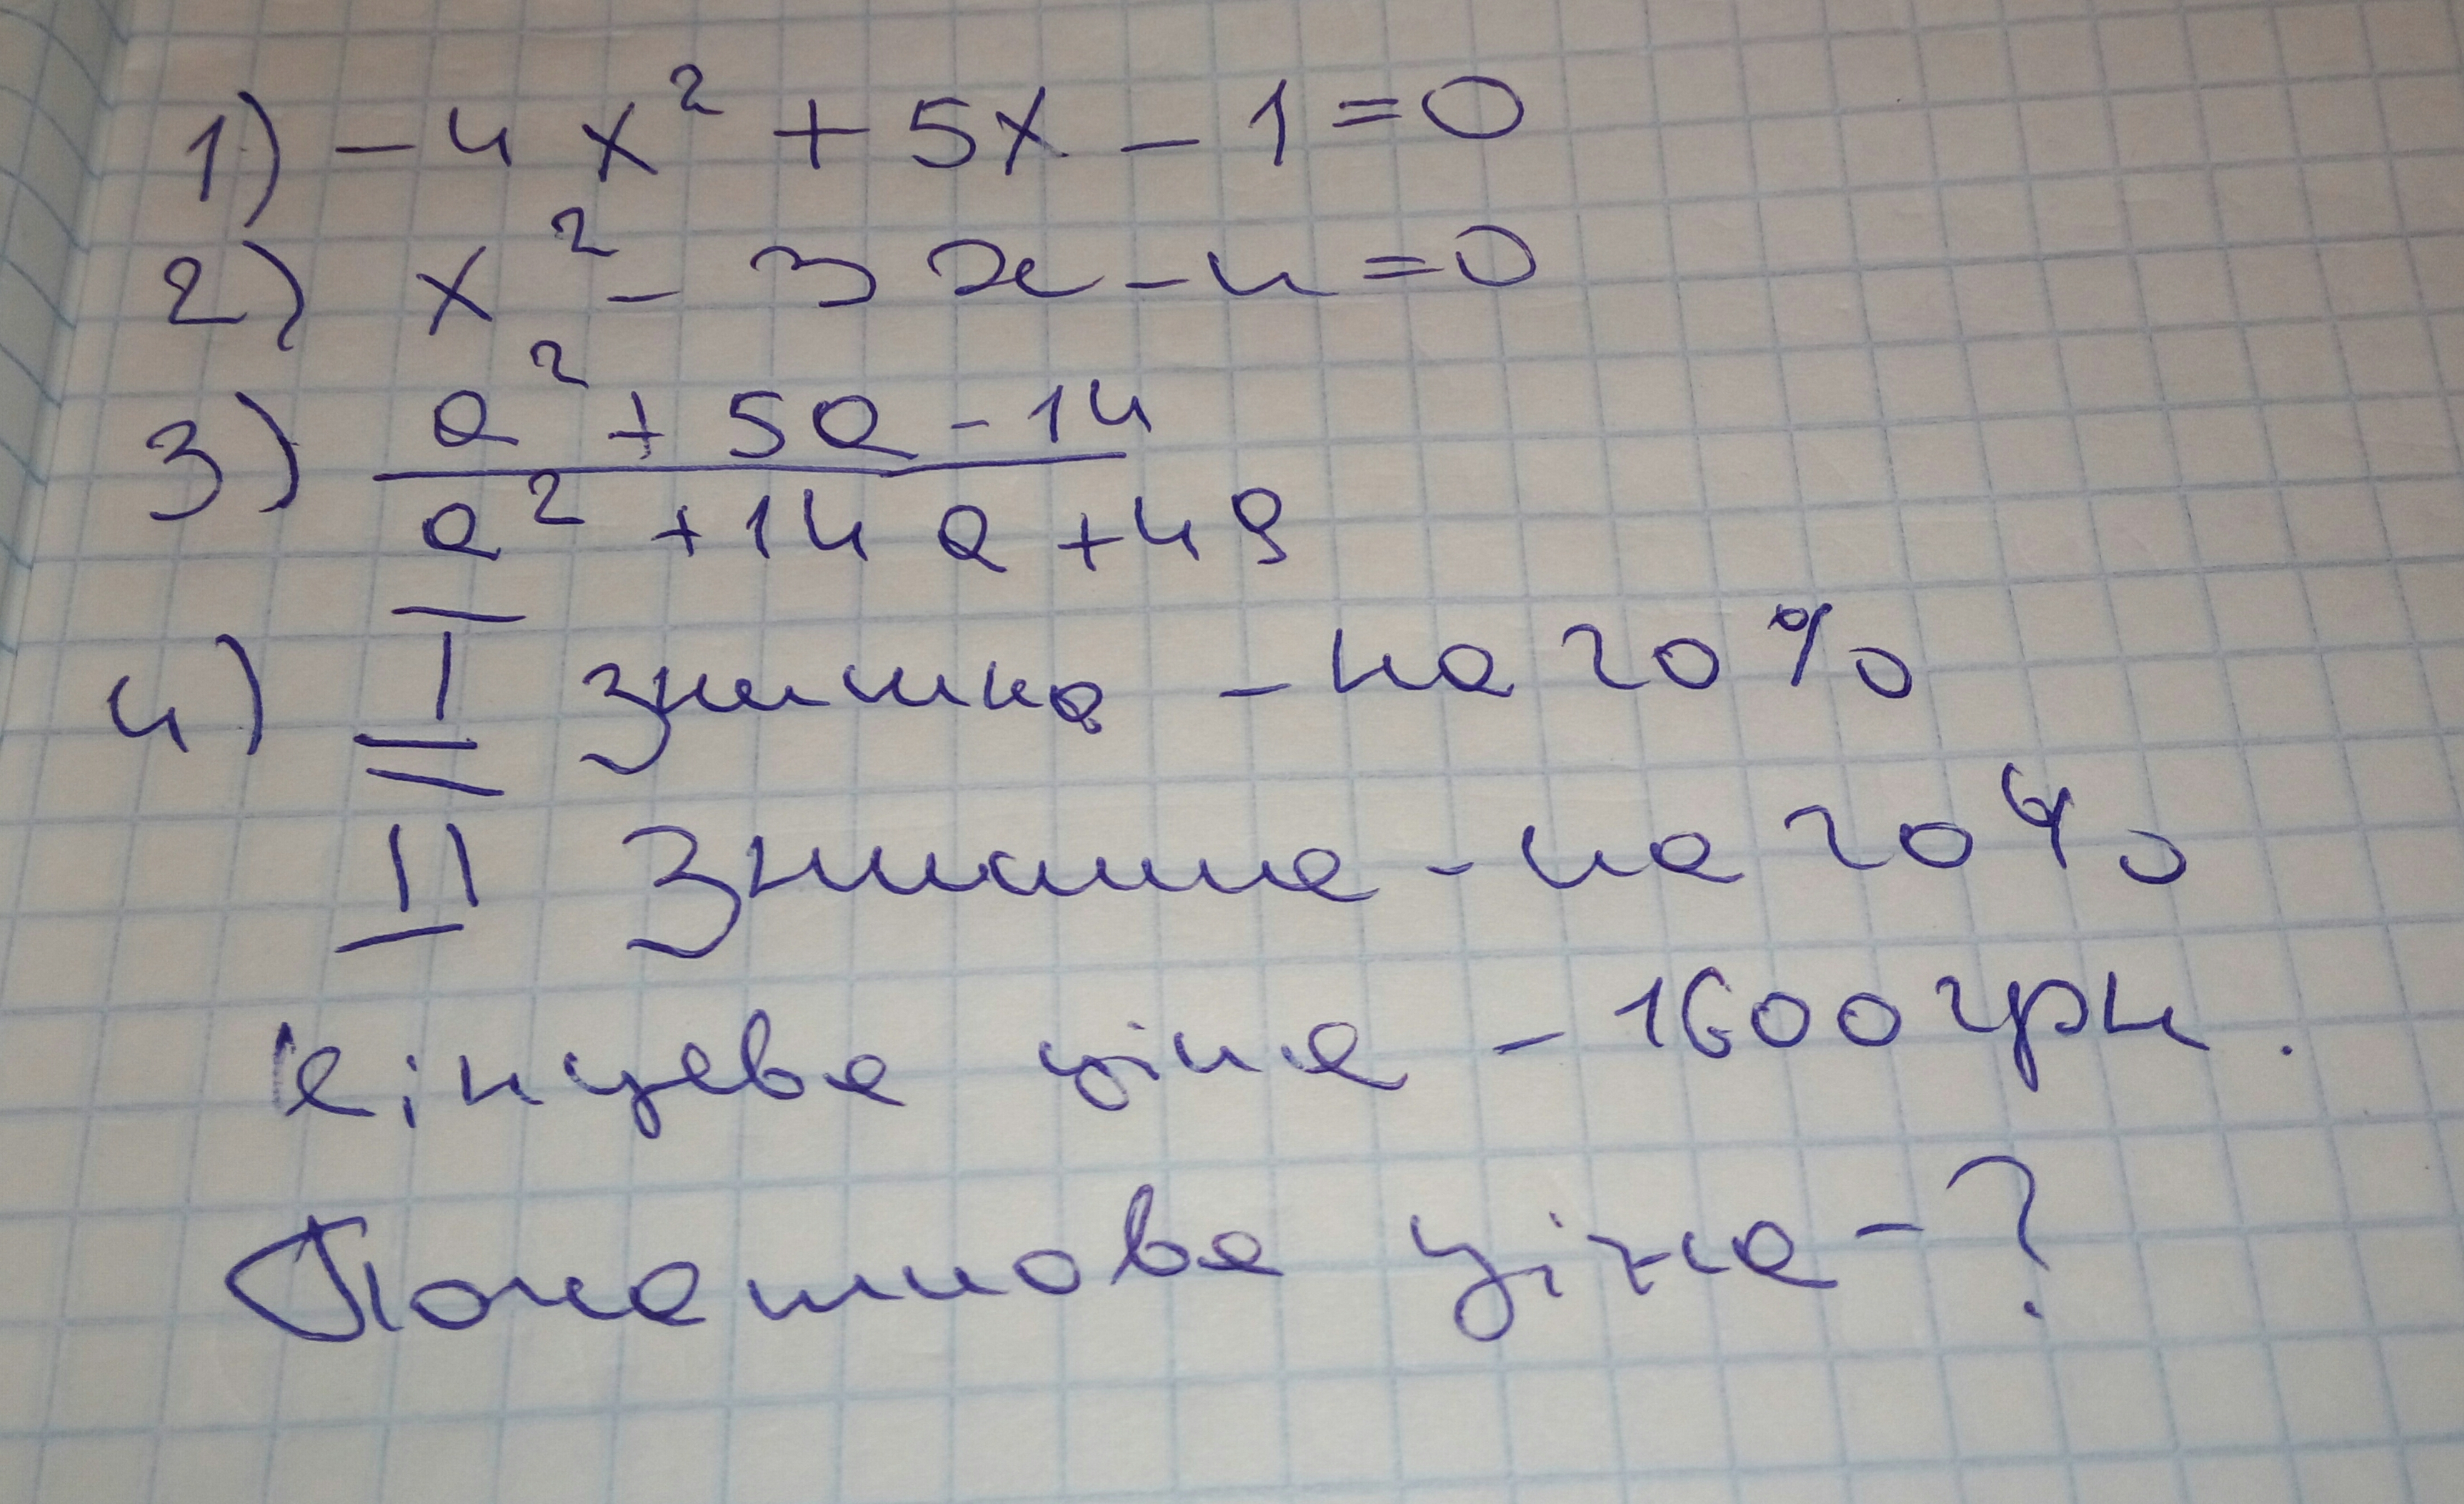 1) -4x² + 5x - 1 = 0
2) x² - 3x - 4 = 0
3) a² + 5a - 14
a² + 14a + 49
4) I знижка - на 20%
II знижка - на 20%
кінцева ціна - 1600 грн.
Початкова ціна - ?